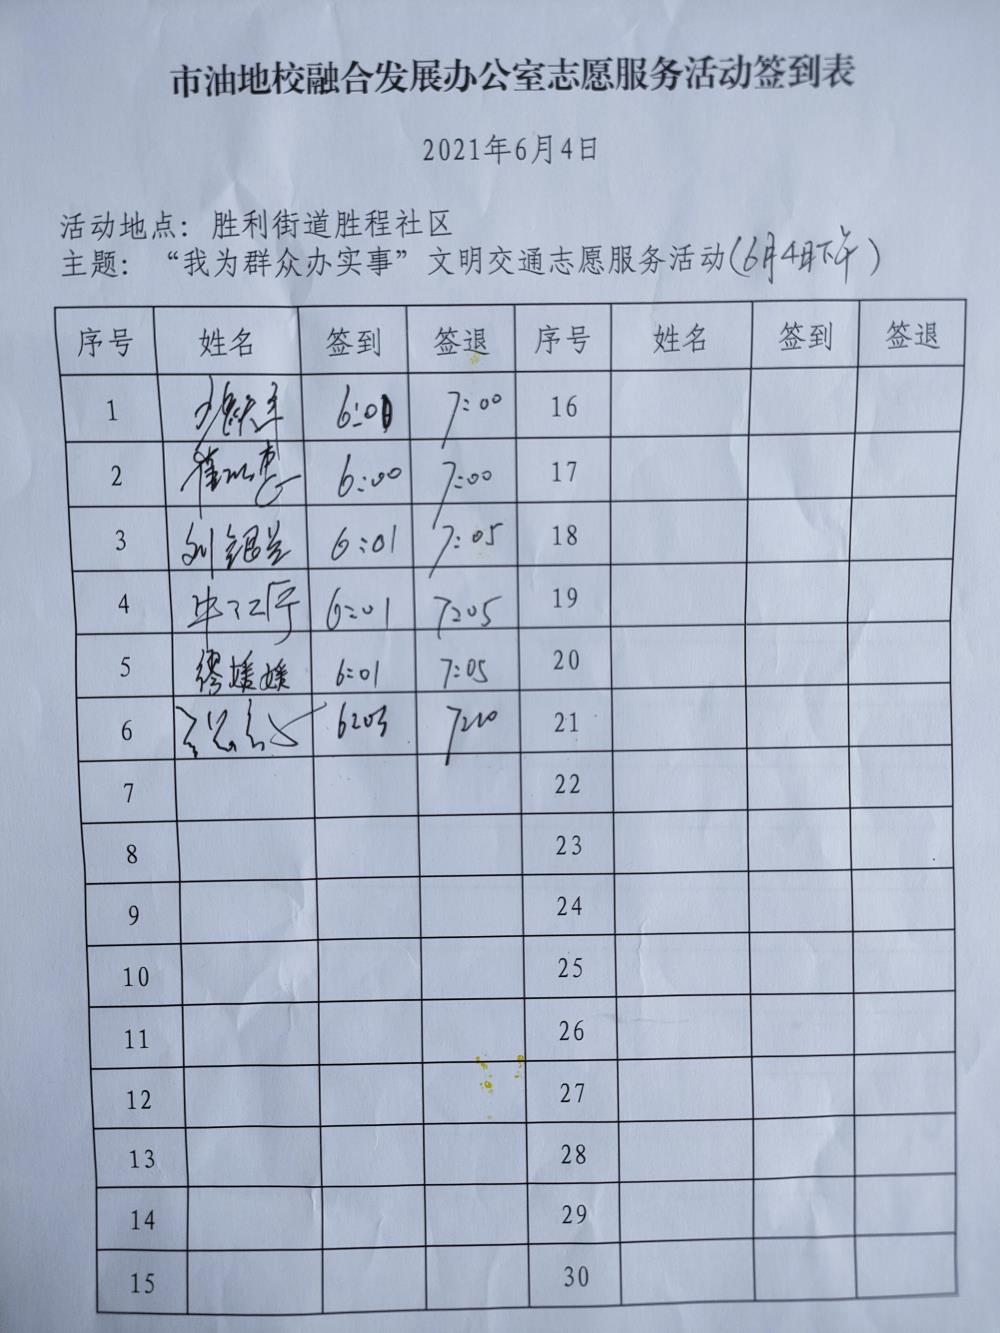 市油地校融合发展办公室志愿服务活动签到表
2021年6月4日
活动地点：胜利街道胜程社区
主题：“我为群众办实事”文明交通志愿服务活动(6月4日下午)
序号 姓名 签到 签退 序号 姓名 签到 签退
1 6:01 7:00 16
2 6:00 7:00 17
3 6:01 7:05 18
4 6:01 7:05 19
5 缪媛媛 6:01 7:05 20
6 6:03 7:10 21
7 22
8 23
9 24
10 25
11 26
12 27
13 28
14 29
15 30